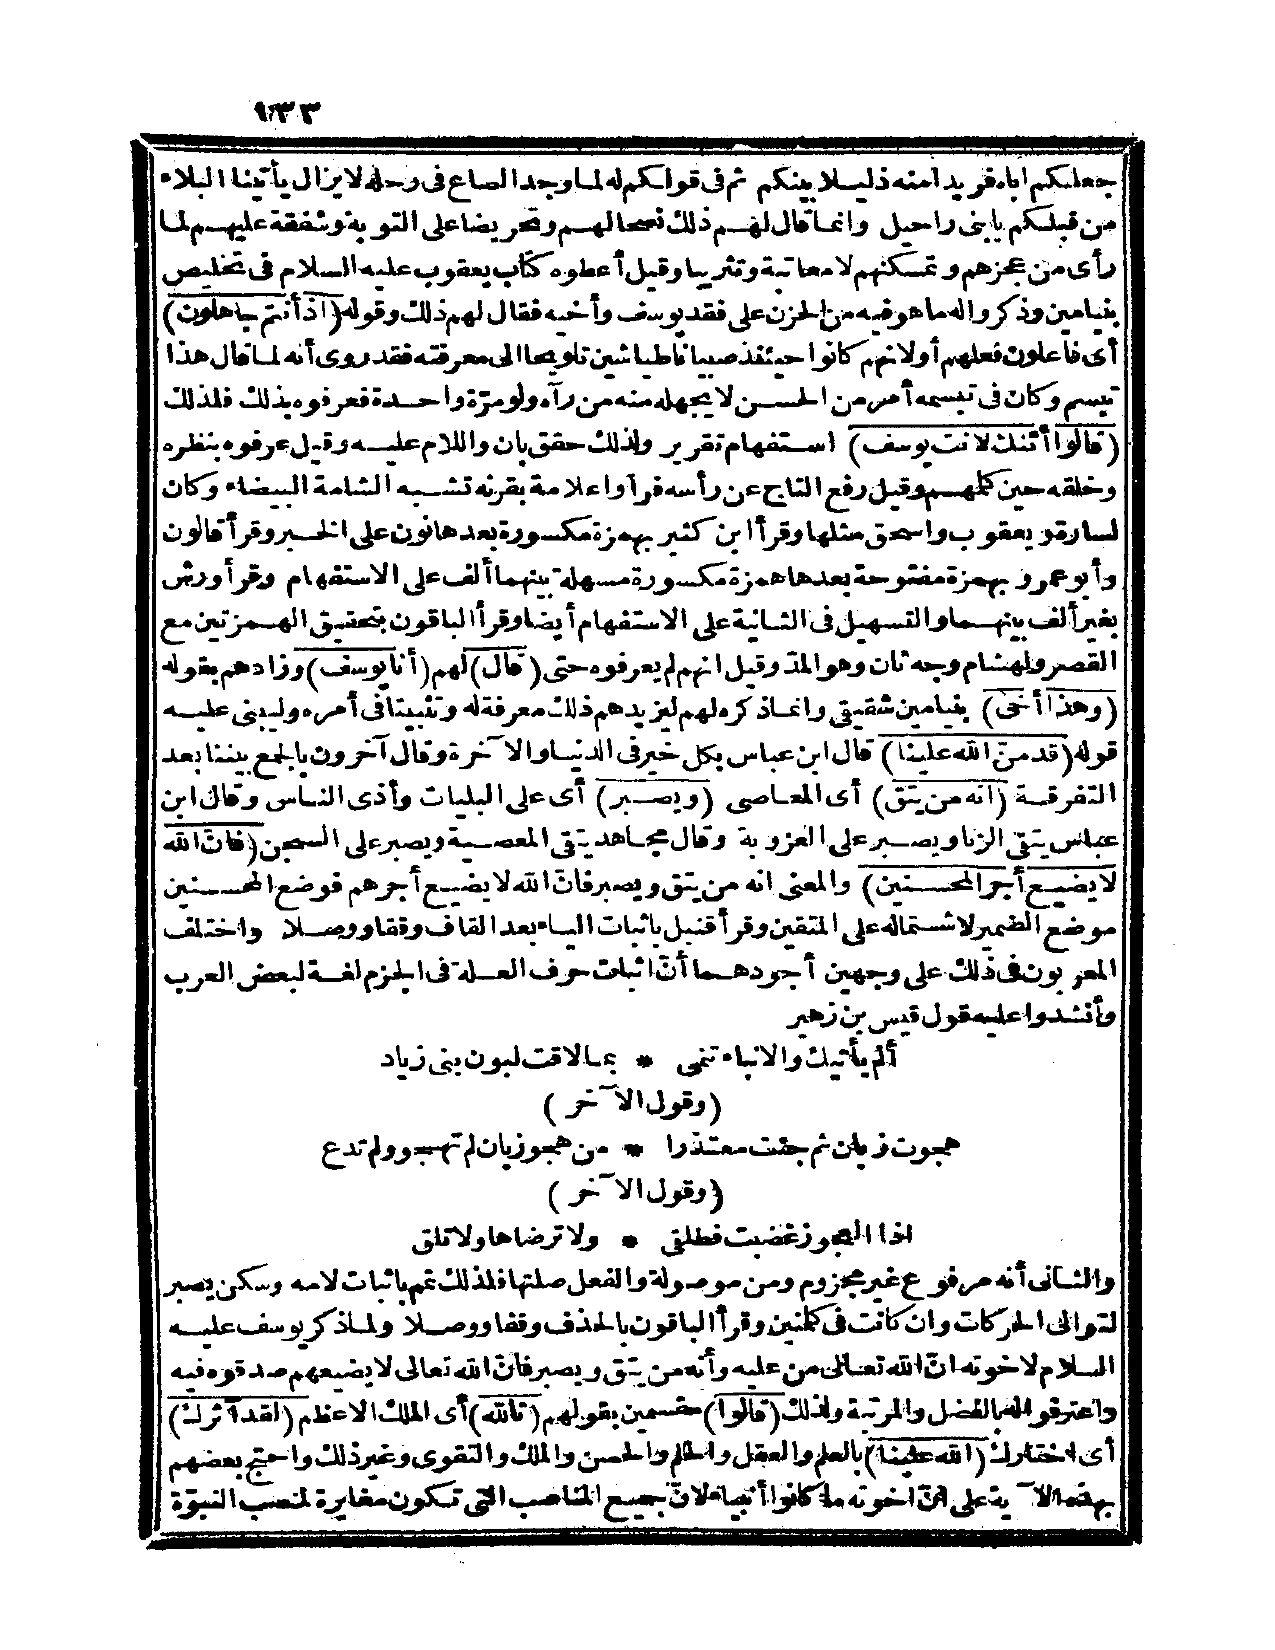 ١٣٣
جعلكم اياه فريدا منه ذليلا بينكم ثم فى قولكم له لما وجد الصاع فى رحله لا يزال يأتينا البلاء
من قبلكم يا بنى راحيل وانما قال لهم ذلك نصحا لهم وتحريضا على التوبة وشفقة عليهم لما
رأى من عجزهم وتمسكنهم لا معاتبة وتثريبا وقيل أعطوه كتاب يعقوب عليه السلام فى تخليص
بنيامين وذكروا له ما هو فيه من الحزن على فقد يوسف وأخيه فقال لهم ذلك وقوله (اذ أنتم جاهلون)
أى فاعلون فعلهم أو لانهم كانوا حينئذ صبيانا طياشين تلويحا الى معرفته فقد روى أنه لما قال هذا
تبسم وكان فى تبسمه أمر من الحسن لا يجهله منه من رآه ولو مرّة واحدة فعرفوه بذلك فلذلك
(قالوا أئنك لانت يوسف) استفهام تقرير ولذلك حقق بان واللام عليه وقيل عرفوه بنظره
وخلقه حين كلمهم وقيل رفع التاج عن رأسه فرأوا علامة بقرنه تشبه الشامة البيضاء وكان
لسارة ويعقوب واسحق مثلها وقرأ ابن كثير بهمزة مكسورة بعدها نون على الخبر وقرأ قالون
وأبو عمرو بهمزة مفتوحة بعدها همزة مكسورة مسهلة بينهما ألف على الاستفهام وقرأ ورش
بغير ألف بينهما والتسهيل فى الثانية على الاستفهام أيضا وقرأ الباقون بتحقيق الهمزتين مع
القصر ولهشام وجه ثان وهو المدّ وقيل انهم لم يعرفوه حتى (قال) لهم (أنا يوسف) وزادهم بقوله
(وهذا أخى) بنيامين شقيقى وانما ذكره لهم ليزيدهم ذلك معرفة له وتثبيتا فى أمره وليبنى عليه
قوله (قد منّ الله علينا) قال ابن عباس بكل خير فى الدنيا والآخرة وقال آخرون بالجمع بيننا بعد
التفرقة (انه من يتق) أى المعاصى (ويصبر) أى على البليات وأذى الناس وقال ابن
عباس يتقى الزنا ويصبر على العزوبة وقال مجاهد يتقى المعصية ويصبر على السجن (فانّ الله
لا يضيع أجر المحسنين) والمعنى انه من يتق ويصبر فانّ الله لا يضيع أجرهم فوضع المحسنين
موضع الضمير لاشتماله على المتقين وقرأ قنبل باثبات الياء بعد القاف وقفا ووصلا واختلف
المعربون فى ذلك على وجهين أجودهما أنّ اثبات حرف العلة فى الجزم لغة لبعض العرب
وأنشدوا عليه قول قيس بن زهير
ألم يأتيك والانباء تنمى * بما لاقت لبون بنى زياد
(وقول الآخر)
هجوت زبان ثم جئت معتذرا * من هجو زبان لم تهجو ولم تدع
(وقول الآخر)
اذا العجوز غضبت فطلقى * ولا ترضاها ولا تملق
والثانى أنه مرفوع غير مجزوم ومن موصولة والفعل صلتها فلذلك عم باثبات لامه وسكن يصبر
لتوالى الحركات وان كانت فى كلمتين وقرأ الباقون بالحذف وقفا ووصلا ولما ذكر يوسف عليه
السلام لاخوته انّ الله تعالى من عليه وأنه من يتق ويصبر فانّ الله تعالى لا يضيعهم صدقوه فيه
واعترفوا له بالفضل والمرتبة ولذلك (قالوا) مقسمين بقولهم (تالله) أى الملك الاعظم (لقد آثرك)
أى اختارك (الله علينا) بالعلم والعقل والحلم والحسن والملك والتقوى وغير ذلك واحتج بعضهم
بهذه الآية على انّ اخوته ما كانوا أنبياء لانّ جميع المناصب التى تكون مغايرة لمنصب النبوّة